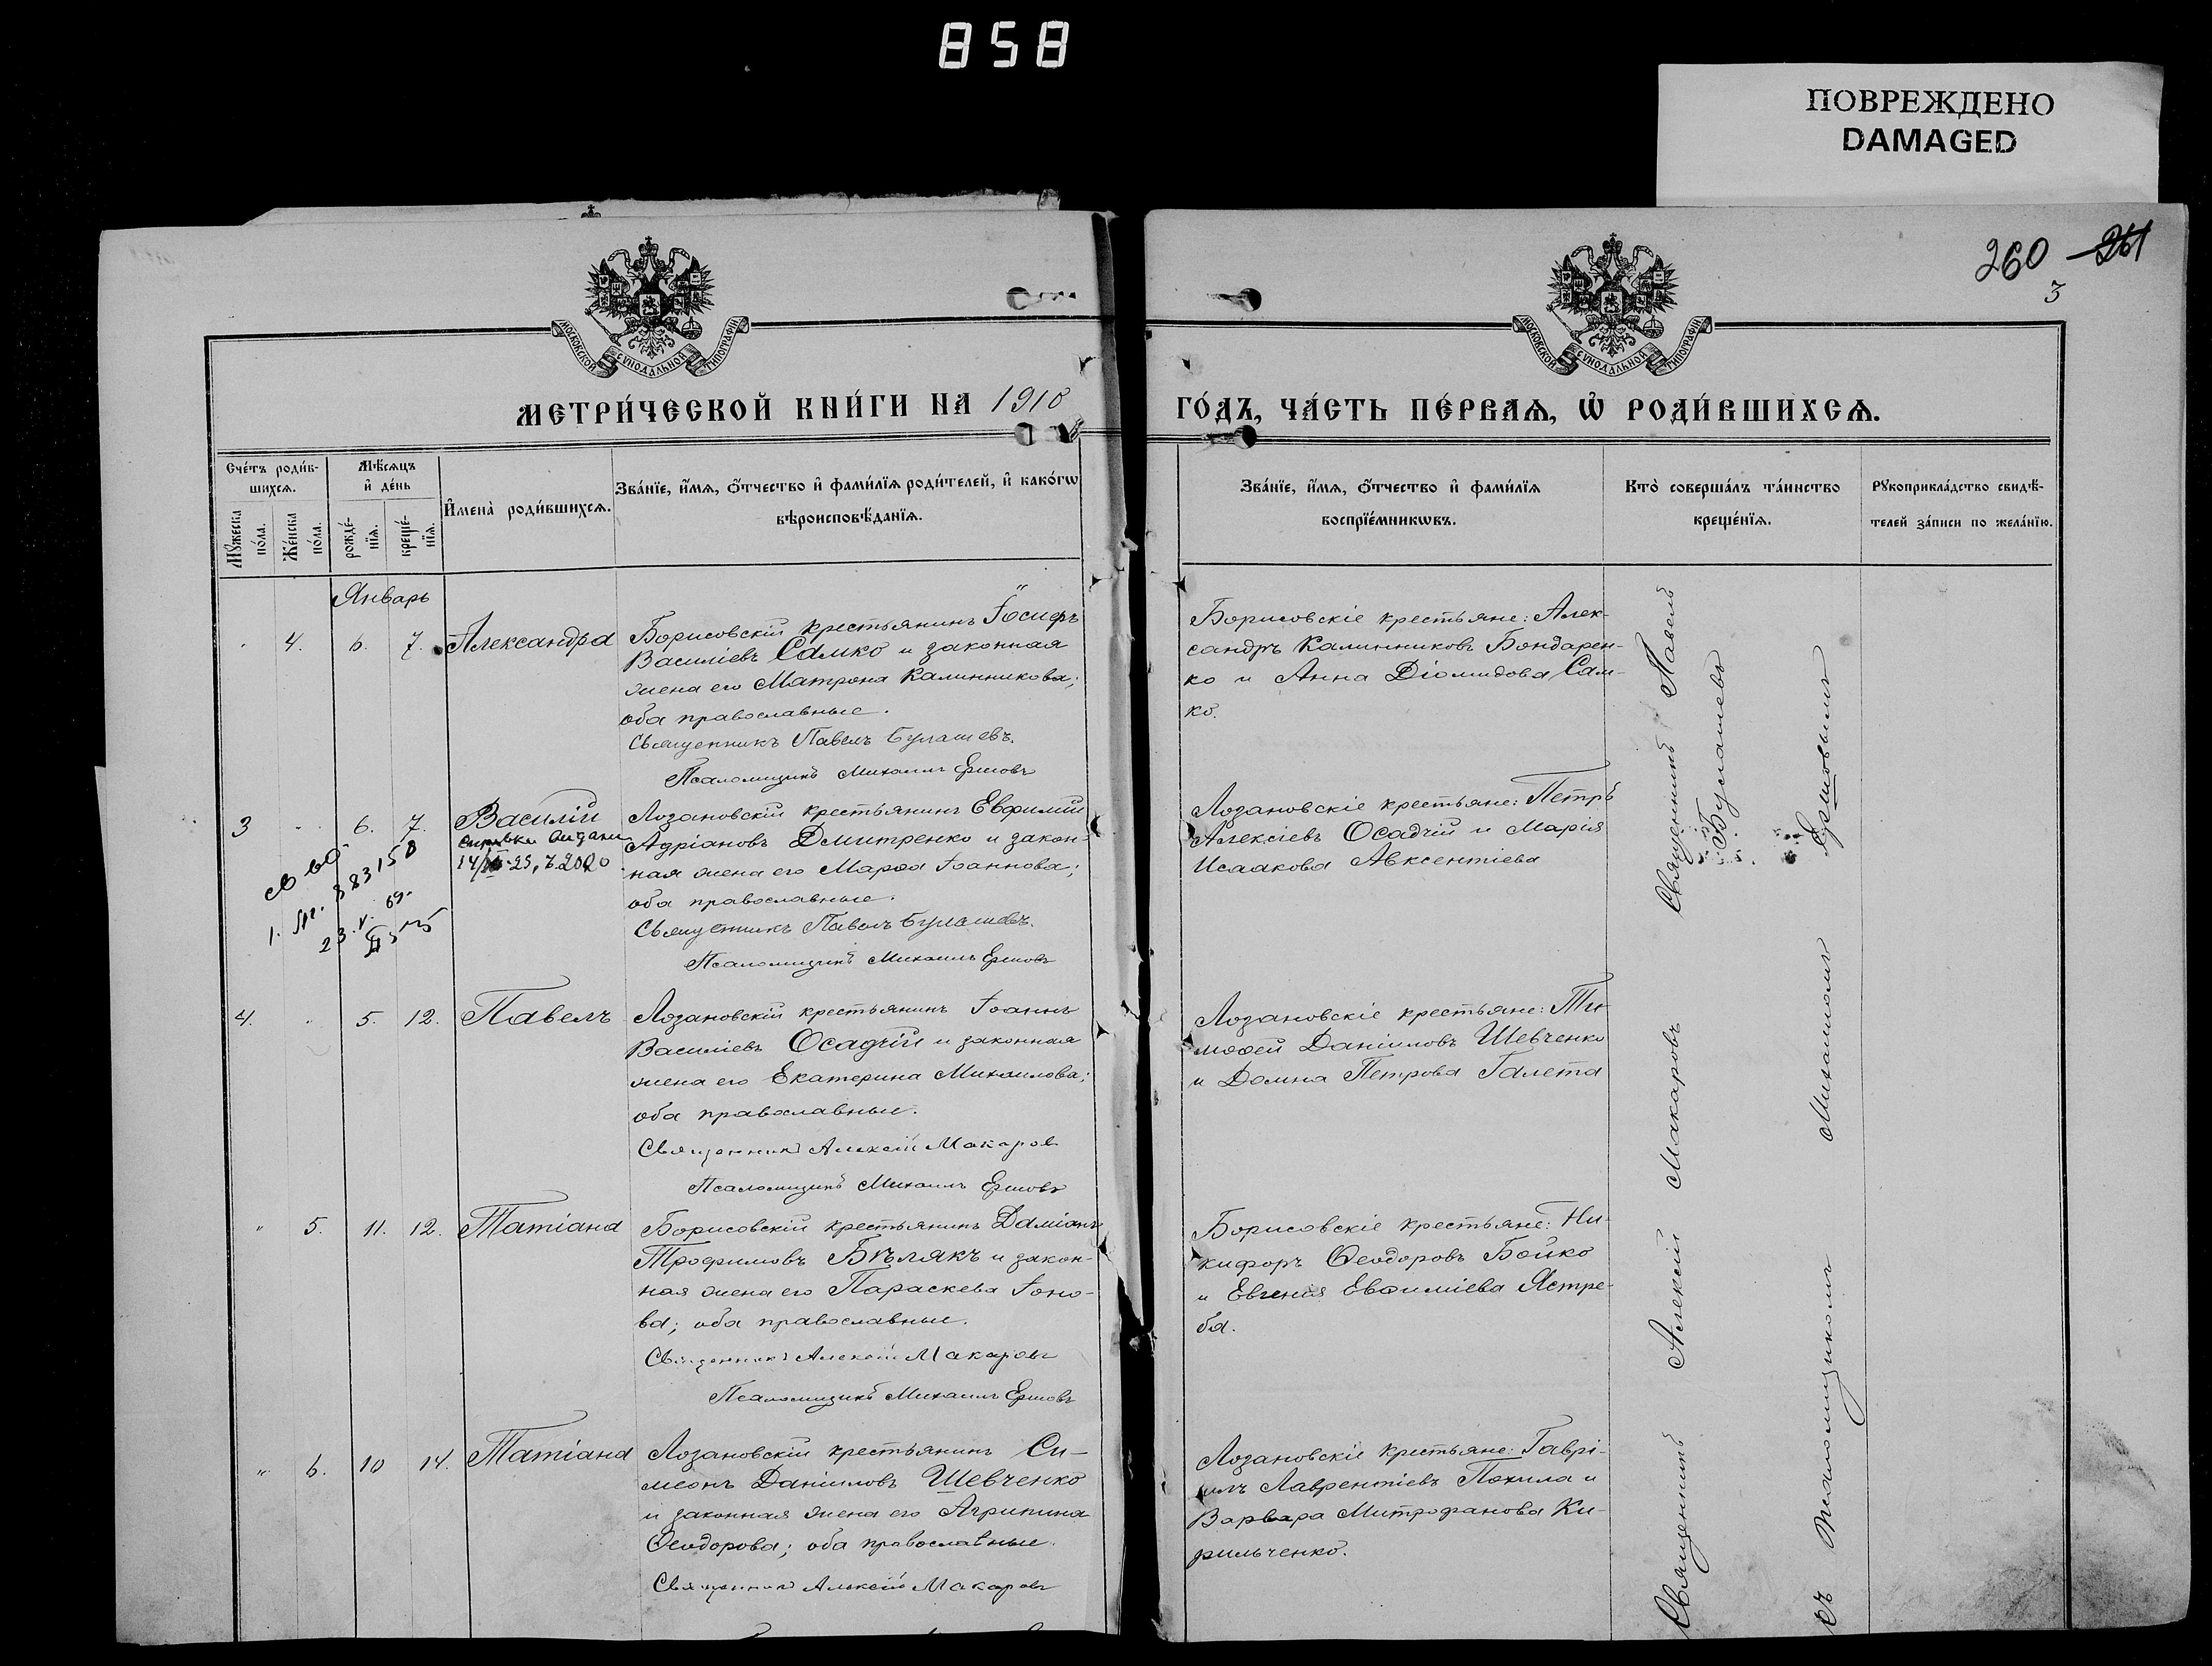 858
ПОВРЕЖДЕНО
DAMAGED
260 261
3
МОСКОВСКОЙ СѴНОДАЛЬНОЙ ТИПОГРАФІИ
МОСКОВСКОЙ СѴНОДАЛЬНОЙ ТИПОГРАФІИ
МЕТРИ́ЧЕСКОЙ КНИ́ГИ НА 1910
ГО́ДЪ, ЧА́СТЬ ПЕ́РВАѦ, Ѡ҆ РОДИ́ВШИХСѦ.
Сче́тъ роди́в-
шихсѧ.
Мꙋ́жеска по́ла.
Же́нска по́ла.
Мѣ́сѧцъ
и҆ де́нь
рожде́-
нїѧ.
креще́-
нїѧ.
И҆мена̀ роди́вшихсѧ.
Зва́нїе, и҆́мѧ, ѻ҆́тчество и҆ фами́лїѧ роди́телей, и҆ како́гѡ
вѣроисповѣ́данїѧ.
Зва́нїе, и҆́мѧ, ѻ҆́тчество и҆ фами́лїѧ
воспрїе́мникѡвъ.
Кто̀ соверша́лъ та́инство
креще́нїѧ.
Рꙋкоприкла́дство свидѣ́-
телей за́писи по жела́нїю.
Январь
4. 6. 7. Александра
Борисовскій крестьянинъ Іосифъ
Василіевъ Самко и законная
жена его Матрона Калинникова;
оба православные.
Священникъ Павелъ Буглашевъ.
Псаломщикъ Михаилъ Ершовъ
Борисовскіе крестьяне: Алек-
сандръ Калинниковъ Бондарен-
ко и Анна Діомидова Сам-
ко.
3 " 6. 7. Василій
14/ 25, 7.2020
883158
23.V. 69.
Лозановскій крестьянинъ Евфимій
Адріановъ Дмитренко и закон-
ная жена его Марѳа Іоаннова;
оба православные.
Священникъ Павелъ
Псаломщикъ Михаилъ Ершовъ
Лозановскіе крестьяне: Петръ
Алексіевъ Осадчій и Марія
Исаакова Авксентіева
4. " 5. 12. Павелъ
Лозановскій крестьянинъ Іоаннъ
Василіевъ Осадчій и законная
жена его Екатерина Михаилова;
оба православные.
Священникъ Алексій Макаровъ
Псаломщикъ Михаилъ Ершовъ
Лозановскіе крестьяне: Ти-
моѳей Даніиловъ Шевченко
и Домна Петрова Галета
" 5. 11. 12. Татіана
Борисовскій крестьянинъ Даміанъ
Трофимовъ Бѣлякъ и закон-
ная жена его Параскева Іоно-
ва; оба православные.
Священникъ Алексій Макаровъ
Псаломщикъ Михаилъ Ершовъ
Борисовскіе крестьяне: Ни-
кифоръ Ѳеодоровъ Бойко
и Евгенія Евѳиміева Ястре-
ба.
" 6. 10 14. Татіана
Лозановскій крестьянинъ Си-
меонъ Даніиловъ Шевченко
и законная жена его Агрипина
Ѳеодорова; оба православные.
Священникъ Алексій Макаровъ
Лозановскіе крестьяне: Гаврі-
илъ Лаврентіевъ Похила и
Варвара Митрофанова Ки-
рильченко.
Священникъ Павелъ
Священникъ Алексій Макаровъ
съ псаломщикомъ Михаиломъ Ершовымъ